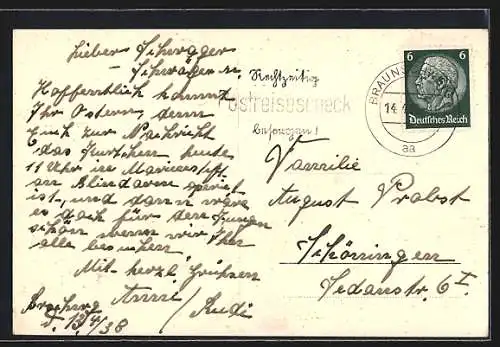 Lieber Schwager
– Schwägerin
Hoffentlich kommt
Ihr Ostern, denn
Euch zur Nachricht
das Jungchen heute
11 Uhr im Marienstift
am Blinddarm operiert
ist, und dann wäre
es doch für den Jungen
schön wenn wir Ihr
alle besuchen.
Mit herzl. Grüssen
Anni / Rudi
Brschwg
d. 13/4/38
Rechtzeitig
Postreisescheck
besorgen!
BRAUNSCHWEIG
14.4
aa
6 6
Deutsches Reich
Familie
August Probst
Schöningen
Sedanstr. 6 I.